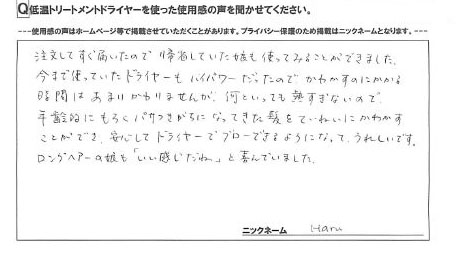 Q低温トリートメントドライヤーを使った使用感の声を聞かせてください。
---使用感の声はホームページ等で掲載させていただくことがあります。プライバシー保護のため掲載はニックネームとなります。---
注文してすぐ届いたので 帰省していた娘も使ってみることができました。
今まで使っていたドライヤーもハイパワーだったので かわかすのにかかる
時間は あまりかわりませんが、何といっても熱すぎないので、
年齢的にもろくパサつきがちになってきた髪をていねいにかわかす
ことができ、安心してドライヤーでブローできるようになって、うれしいです。
ロングヘアーの娘も「いい感じだね。」と喜んでいました。
ニックネーム Haru